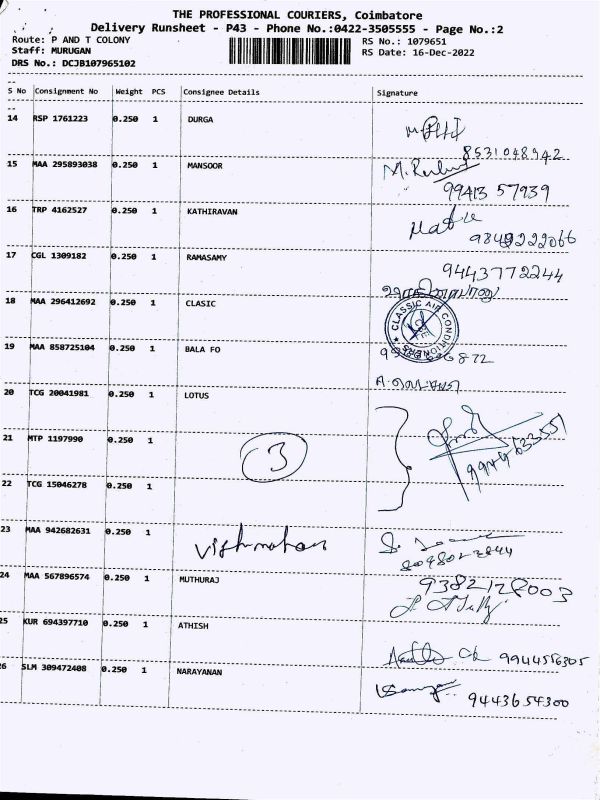 THE PROFESSIONAL COURIERS, Coimbatore
Delivery Runsheet - P43 - Phone No.:0422-3505555 - Page No.:2
Route: P AND T COLONY
Staff: MURUGAN
DRS No.: DCJB107965102
RS No.: 1079651
RS Date: 16-Dec-2022
S No Consignment No Weight PCS Consignee Details Signature
14 RSP 1761223 0.250 1 DURGA
8531048942
15 MAA 295893038 0.250 1 MANSOOR
99413 57939
16 TRP 4162527 0.250 1 KATHIRAVAN
17 CGL 1309182 0.250 1 RAMASAMY
9443772244
18 MAA 296412692 0.250 1 CLASIC
CLASSIC AIR CONDITIONERS
19 MAA 858725104 0.250 1 BALA FO
20 TCG 20041981 0.250 1 LOTUS
21 MTP 1197990 0.250 1
3
22 TCG 15046278 0.250 1
23 MAA 942682631 0.250 1
24 MAA 567896574 0.250 1 MUTHURAJ
9382128003
25 KUR 694397710 0.250 1 ATHISH
9944556305
26 SLM 309472408 0.250 1 NARAYANAN
9443654300